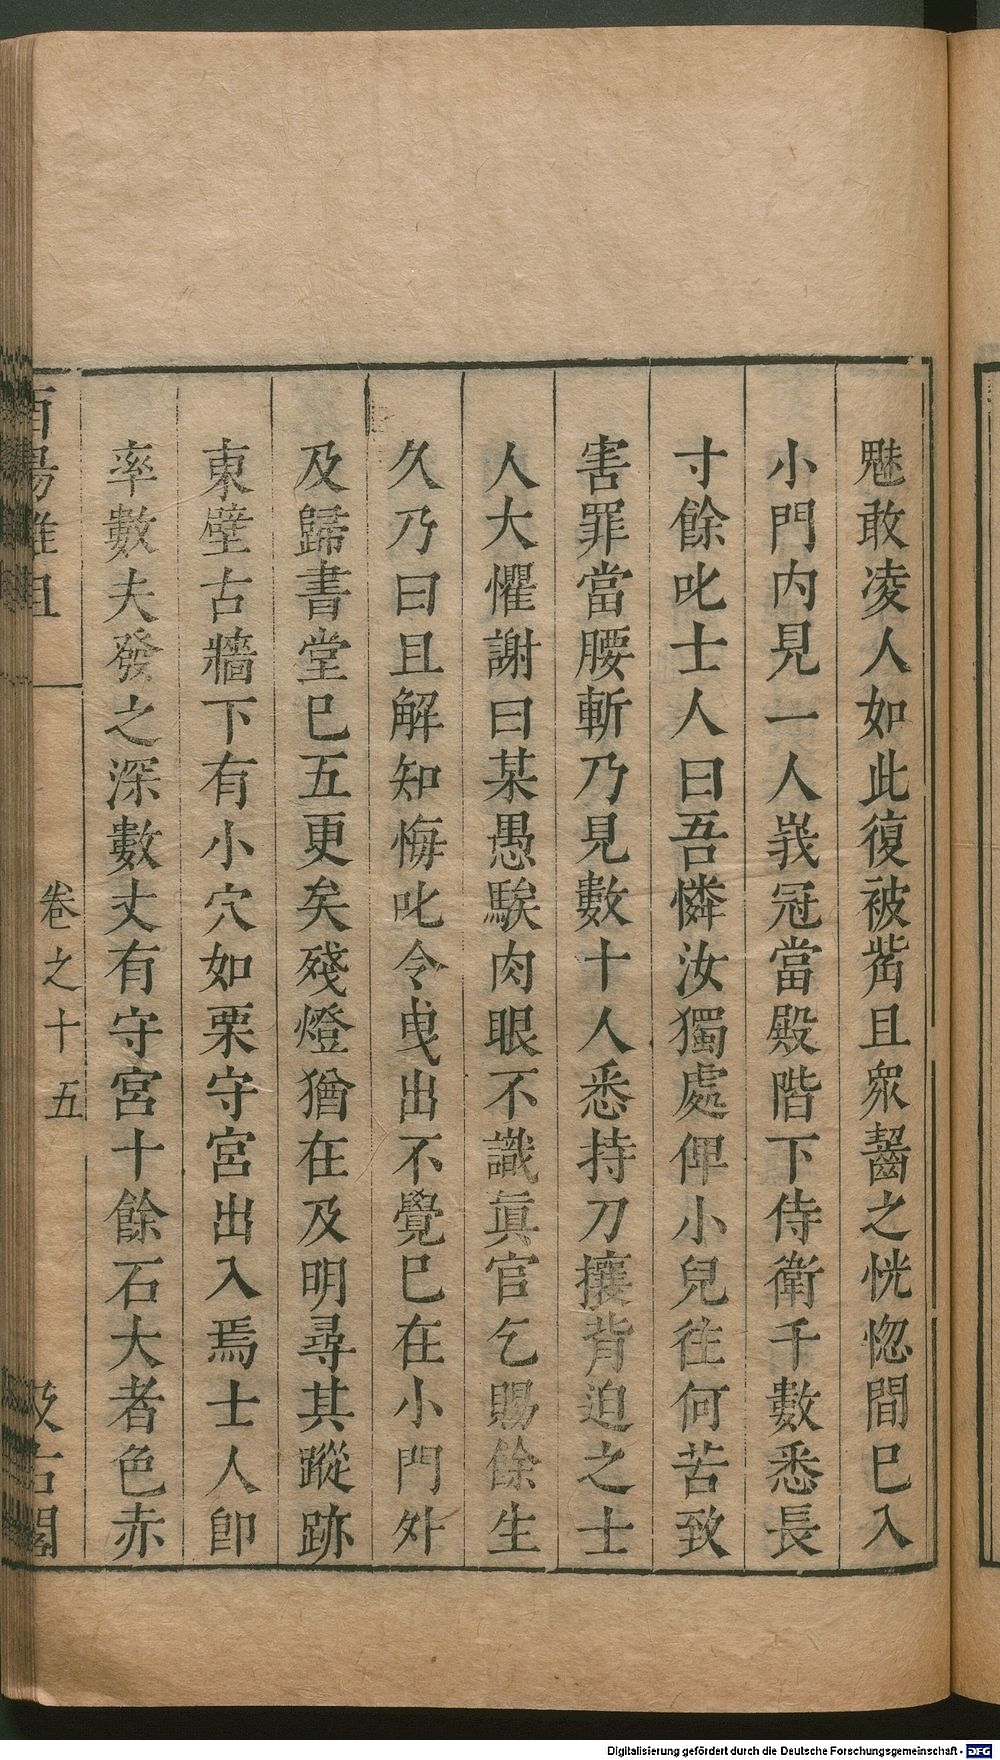 魅敢凌人如此復被觜且衆齧之恍惚間已入
小門內見一人峩冠當殿階下侍衛千數悉長
寸餘叱士人曰吾憐汝獨處俾小兒往何苦致
害罪當腰斬乃見數十人悉持刀攘背迫之士
人大懼謝曰某愚騃肉眼不識眞官乞賜餘生
久乃曰且解知悔叱令曳出不覺已在小門外
及歸書堂已五更矣殘燈猶在及明尋其蹤跡
東壁古牆下有小穴如栗守宮出入焉士人卽
率數夫發之深數丈有守宮十餘石大者色赤
酉陽雜俎
卷之十五
汲古閣
Digitalisierung gefördert durch die Deutsche Forschungsgemeinschaft - DFG